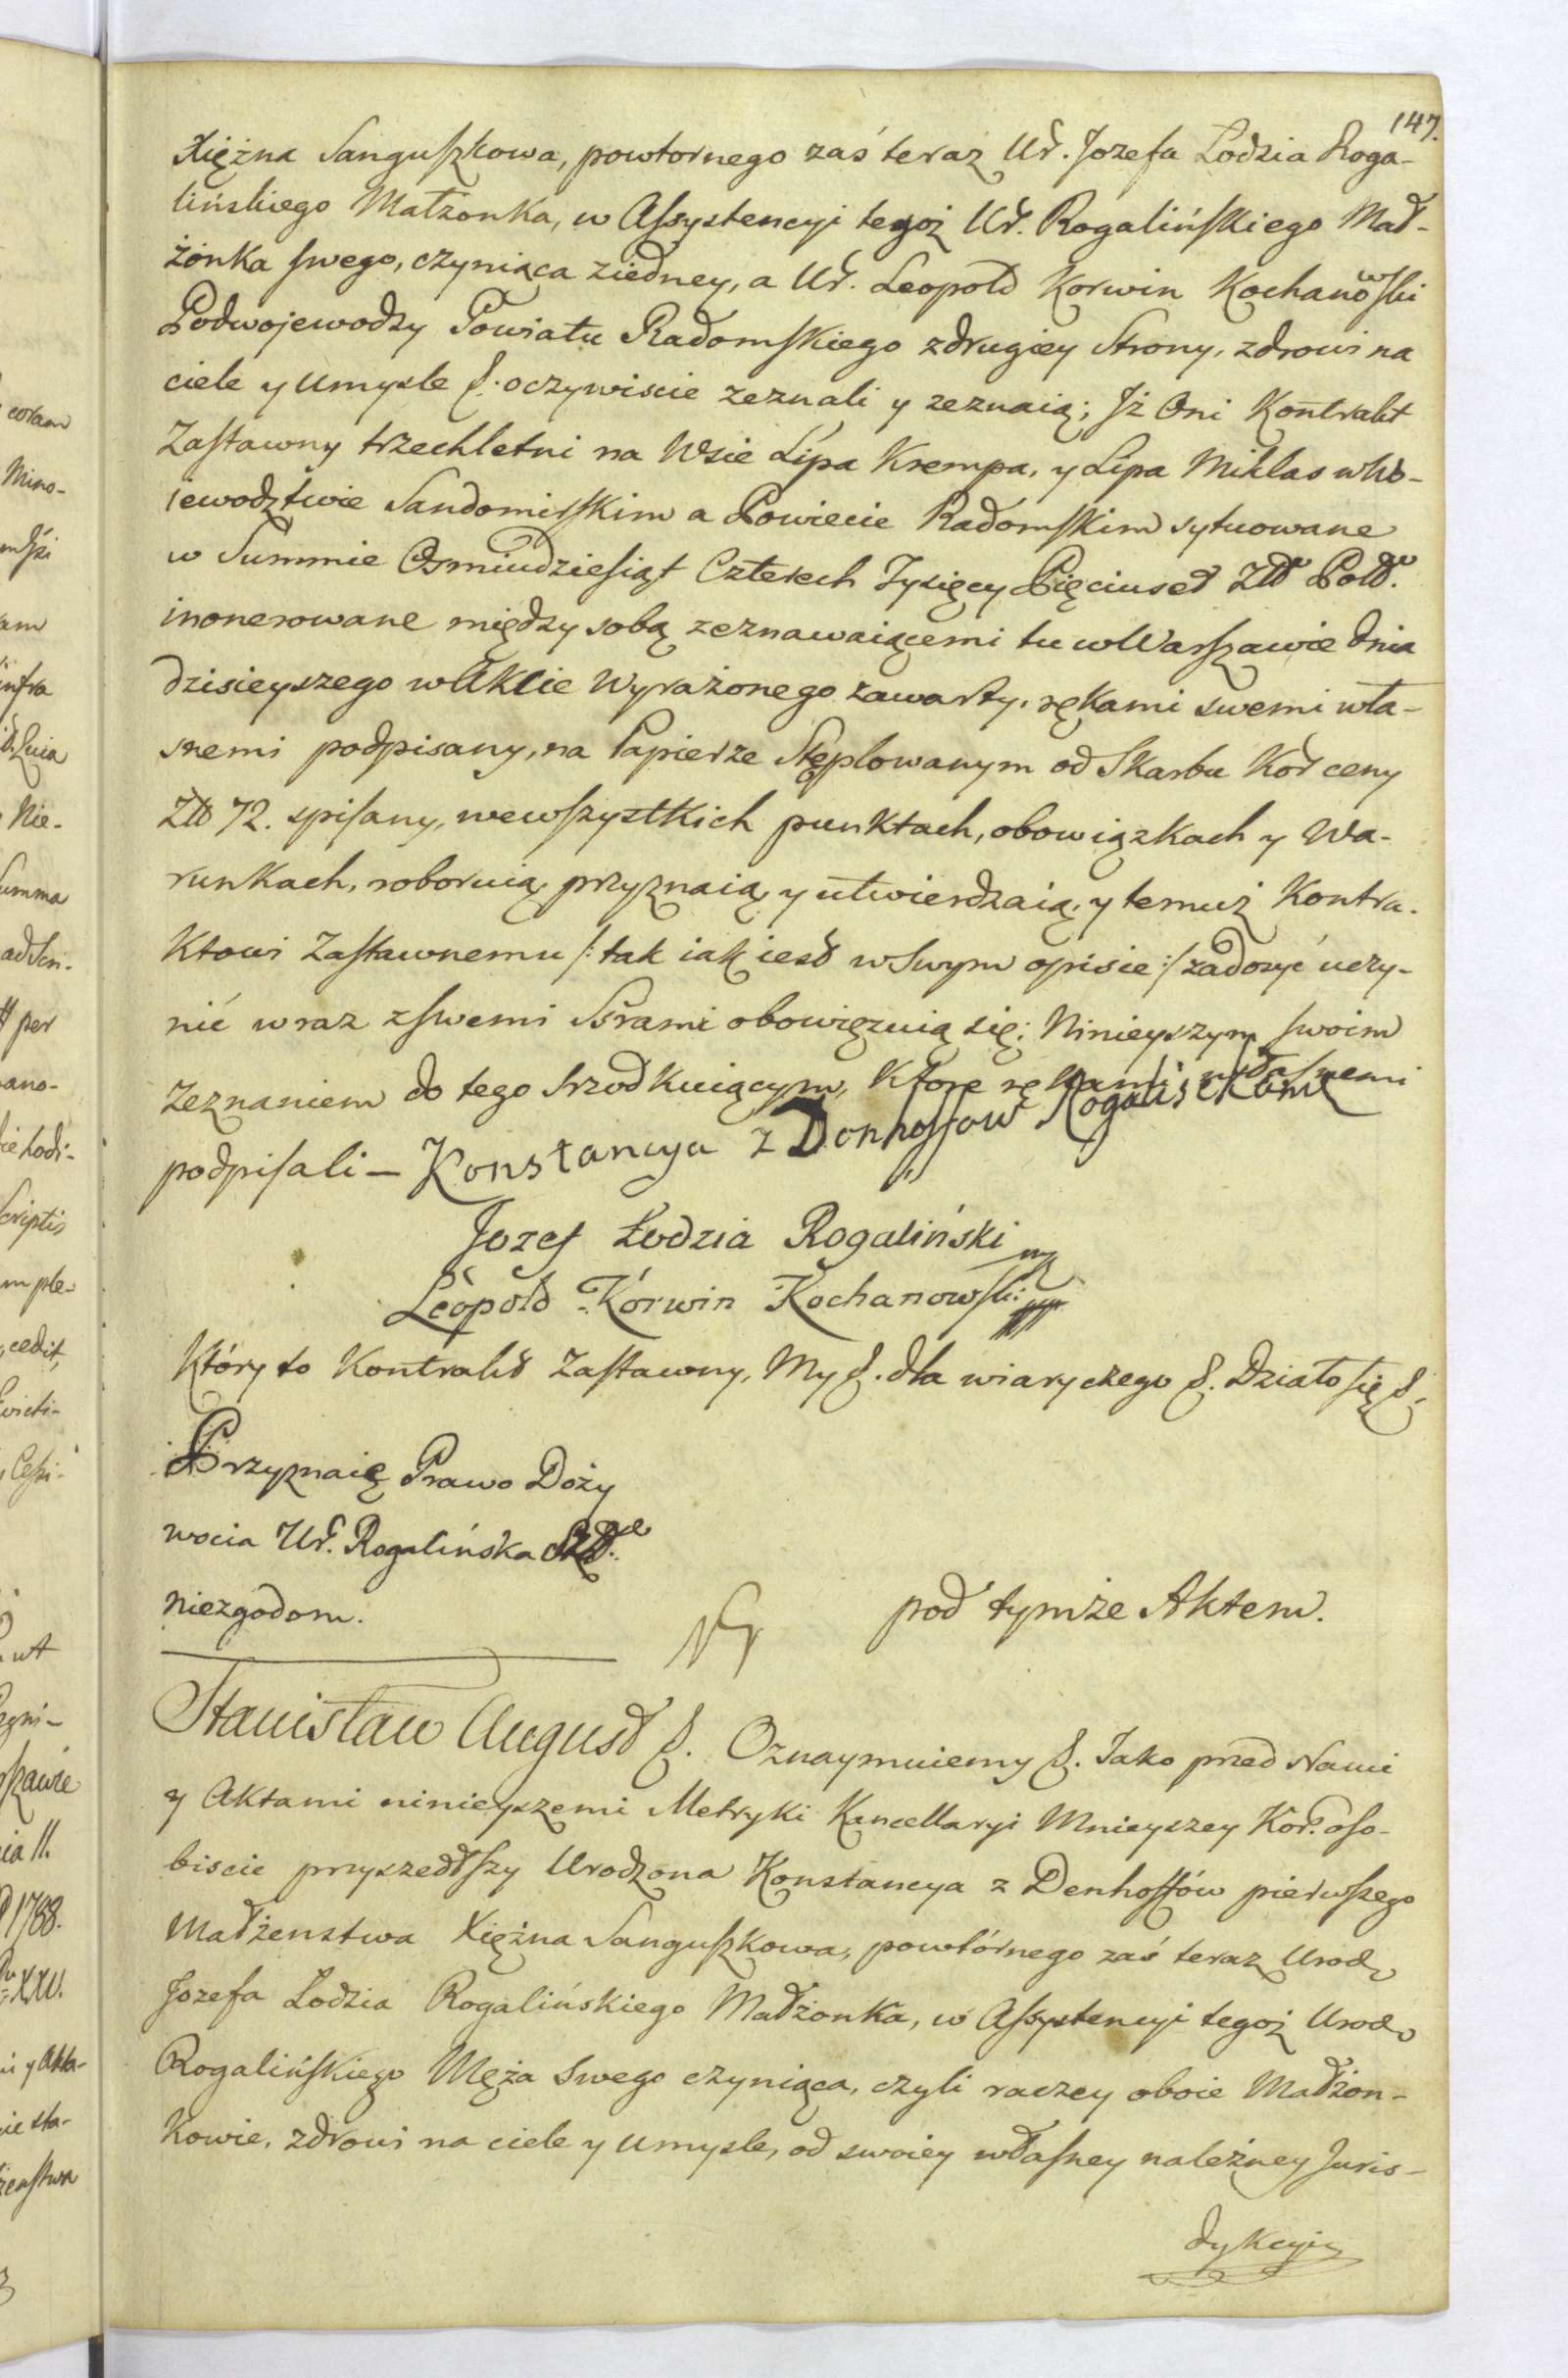 147.
Xiężna Sanguszkowa, powtornego zaś teraz Ur. Jozefa Lodzia Roga-
lińskiego Małzonka, w Assystencyi tegoż Ur. Rogalińskiego Mał-
żonka swego, czyniąca ziedney, a Ur. Leopold Korwin Kochanowski
Podwojewodzy Powiatu Radomskiego zdrugiey Strony, zdrowi na
ciele y Umysle &. oczywiscie zeznali y zeznaią; Jż Oni Kontrakt
Zastawny trzechletni na Wsie Lipa Krempa, y Lipa Miklas w Wo-
iewodztwie Sandomirskim a Powiecie Radomskim sytuowane
w Summie Osmiudziesiąt Czterech Tysięcy Pięciuset Złł Poll.
inonerowane między sobą zeznawaiącemi tu w Warszawie dnia
dzisieyszego w Akcie Wyrażonego zawarty, rękami swemi wła-
snemi podpisany, na Papierze Stęplowanym od Skarbu Kor ceny
Złł 72. spisany, wewszystkich punktach, obowiązkach y Wa-
runkach, roboruią przyznaią y utwierdzaią, y temuż Kontra-
Ktowi Zastawnemu /: tak iak iest w swym opisie :/ zadosyć uczy-
nić wraz zswemi Ssrami obowięzuią się; Ninieyszym swoim
Zeznaniem do tego srzodkuiącym, Ktore rękami własnemi
podpisali – Konstancya z Donhoffow Rogalińska
Jozef Łodzia Rogaliński mp
Leopold Korwin Kochanowski mp
Który to Kontrakt Zastawny, My &. dla wiary czego &. Działo się &.
Przyznaię Prawo Doży
wocia Ur. Rogalińska
niezgodom.
pod tymże Aktem.
Stanisław August &. Oznaymuiemy &. Iako przed Nami
y Aktami ninieyszemi Metryki Kancellaryi Mnieyszey Kor. oso-
biscie przyszedłszy Urodzona Konstancya z Denhoffów pierwszego
Małżenstwa Xiężna Sanguszkowa, powtórnego zaś teraz Urodz
Jozefa Lodzia Rogalińskiego Małżonka, w Assystencyi tegoż Urodz
Rogalińskiego Męża Swego czyniąca, czyli raczey oboie Małżon-
kowie, zdrowi na ciele y Umysle, od swoiey własney należney Juris-
dykcyi